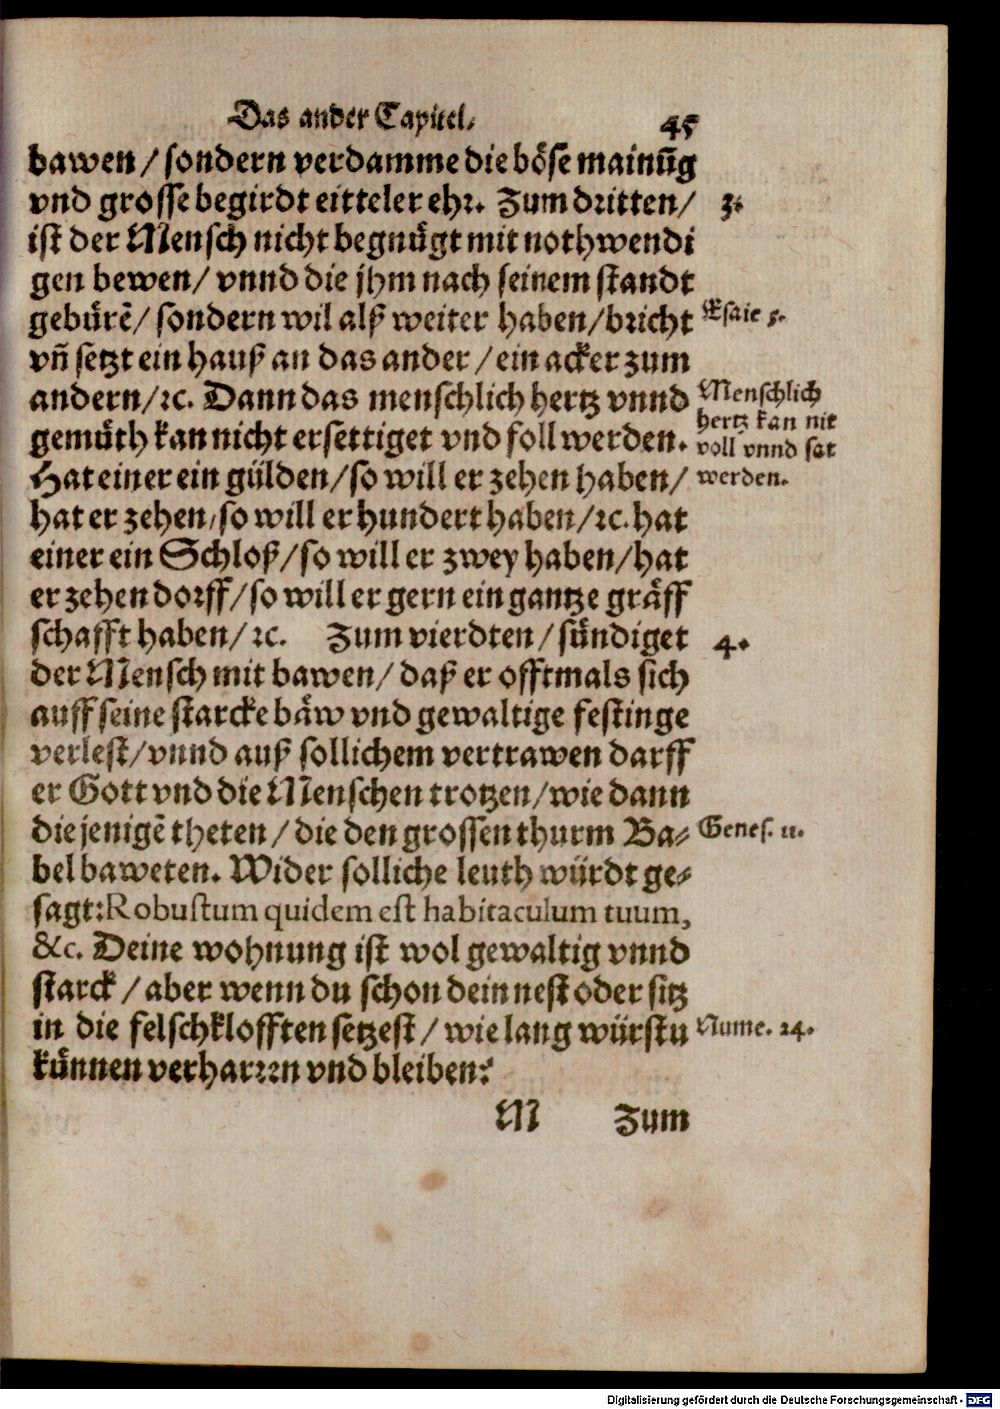 Das ander Capitel. 45
bawen / sondern verdamme die böse mainūg
vnd grosse begirdt eitteler ehr. Zum dritten / 3.
ist der Mensch nicht begnügt mit nothwendi
gen bewen / vnnd die jhm nach seinem standt
gebürē / sondern wil alß weiter haben / bricht Esaie 5.
vñ setzt ein hauß an das ander / ein acker zum
andern / ꝛc. Dann das menschlich hertz vnnd
gemüth kan nicht ersettiget vnd foll werden.
Menschlich
hertz kan nit
voll vnnd sat
werden.
Hat einer ein gülden / so will er zehen haben /
hat er zehen / so will er hundert haben / ꝛc. hat
einer ein Schloß / so will er zwey haben / hat
er zehen dorff / so will er gern ein gantze gräff
schafft haben / ꝛc. Zum vierdten / sündiget 4.
der Mensch mit bawen / daß er offtmals sich
auff seine starcke bäw vnd gewaltige festinge
verlest / vnnd auß sollichem vertrawen darff
er Gott vnd die Menschen trotzen / wie dann
die jenigē theten / die den grossen thurm Ba- Genes. 11.
bel baweten. Wider solliche leuth würdt ge-
sagt: Robustum quidem est habitaculum tuum,
&c. Deine wohnung ist wol gewaltig vnnd
starck / aber wenn du schon dein nest oder sitz
in die felschklofften setzest / wie lang würstu Nume. 24.
künnen verharren vnd bleiben?
M Zum
Digitalisierung gefördert durch die Deutsche Forschungsgemeinschaft - DFG